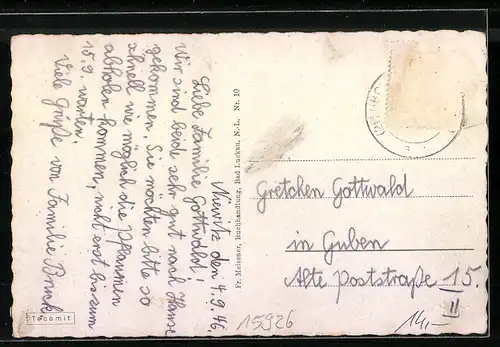 Niewitz den 4.9.46.
Liebe Familie Gottwald!
Wir sind beide sehr gut nach Hause
gekommen. Sie möchten bitte so
schnell wie möglich die Pflaumen
abholen kommen, nicht erst bis zum
15.9. warten.
Viele Grüße von Familie
Fr. Meissner, Buchhandlung, Bad Luckau, N. L. Nr. 10
Gretchen Gottwald
in Guben
Alte Poststraße 15.
II
15926
14,-
Tocomit